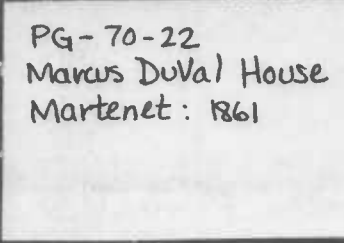 PG-70-22
Marcus DuVal House
Martenet: 1861